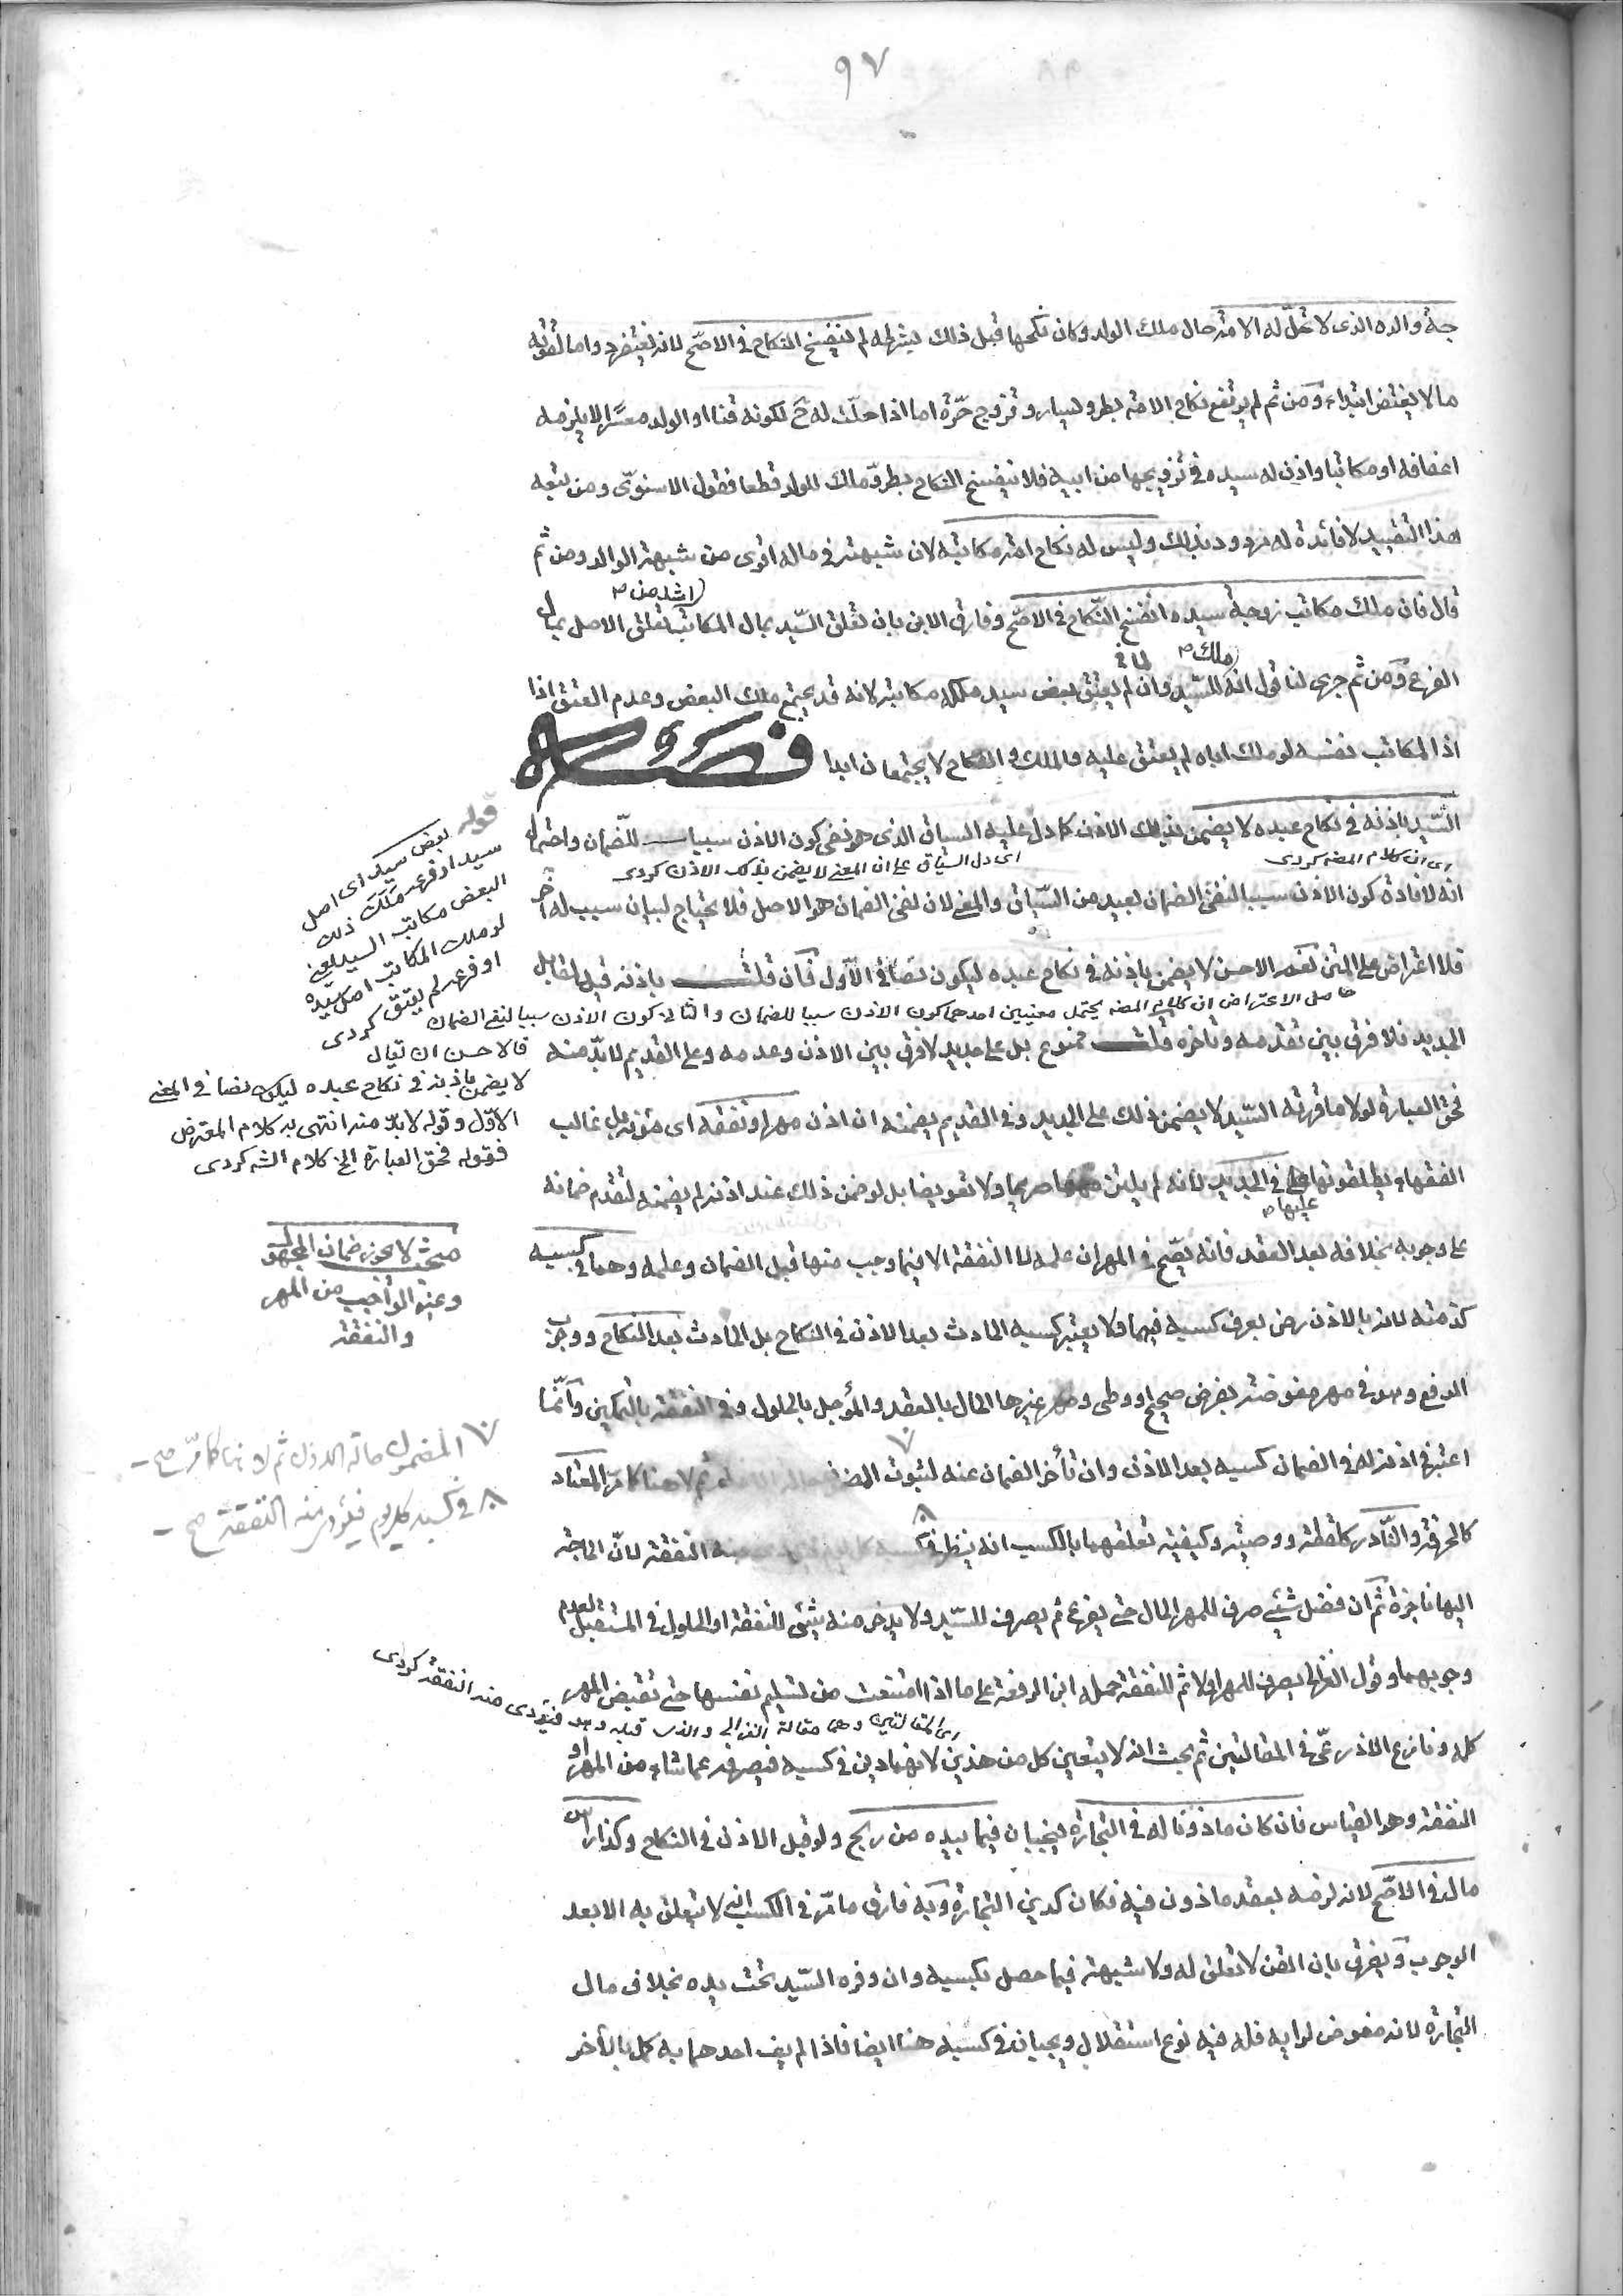 ٩٧
جة والده الذى لا تحل له الامة حال ملك الولد وكان نكحها قبل ذلك بشرطه لم ينفسخ النكاح فى الاصح لانه يغتفر فى الدوام لقوته
ما لا يغتفر ابتداء ومن ثم لم يرتفع نكاح الامة بطرو يسار وتزوج حرة اما اذا حلت له ح لكونه قنا او الولد معسرا لا يلزمه
اعفافه او مكاتبا واذن له سيده فى تزويجها من ابيه فلا ينفسخ النكاح بطرو ملك الولد قطعا فقول الاسنوى ومن تبعه
هذا التقييد لا فائدة له مردود بذلك وليس له نكاح امة مكاتبه لان شبهته فى ماله اقوى من شبهة الوالد ومن ثم
قال فان ملك مكاتب زوجة سيده انفسخ النكاح فى الاصح وفارق الابن بان تعلق السيد بمال المكاتب اشد من تعلق الاصل بمال
الفرع ومن ثم جرى لنا قول انه ملك للسيد وانما لم يعتق بعض سيد ملكه مكاتبه لانه قد يجتمع ملك البعض وعدم العتق اذا
اذ المكاتب نفسه لو ملك اباه لم يعتق عليه والملك والنكاح لا يجتمعان ابدا فصل
السيد باذنه فى نكاح عبده لا يضمن بذلك الاذن كما دل عليه السياق الذى هو نفى كون الاذن سببا للضمان واحتمال
اى ان كلام المصه كردى
اى دل السياق على ان المعنى لا يضمن بذلك الاذن كردى
انه لافادة كون الاذن سببا لنفى الضمان بعيد من السياق والمعنى لان نفى الضمان هو الاصل فلا يحتاج لبيان سبب له آخر
فلا اعتراض على المتن نعم الاحسن لا يضمن باذنه فى نكاح عبده ليكون نصا فى الاول فان قلت باذنه قيد لمقابل
حاصل الاعتراض ان كلام المصه يحتمل معنيين احدهما كون الاذن سببا للضمان والثانى كون الاذن سببا لنفى الضمان
الجديد فلا فرق بين تقدمه وتأخره قلت ممنوع بل على جديد لا فرق بين الاذن وعدمه وعلى القديم لا بد منه
فحق العبارة لولا ما قررته السيد لا يضمن ذلك على الجديد وفى القديم يضمنه ان اذن مهرا ونفقة اى مؤنة بل غالب
الفقهاء يطلقونها عليها فى الجديد لانه لم يلتزمهما صريحا ولا تعويضا بل لو ضمن ذلك عند اذنه لم يضمنه لتقدم ضمانه
على وجوبه بخلافه بعد العقد فانه يصح فى المهر ان علمه لا النفقة الا فيما وجب منها قبل الضمان وعلمه وهما فى كسبه
كذمته لانه بالاذن رضى بصرف كسبه فيهما ولا يعتبر كسبه الحادث بعد الاذن فى النكاح بل الحادث بعد النكاح ووجوب
الدفع وهو فى مهر مفوضة بفرض صحيح او وطئ ومهر غيرها الحال بالعقد والمؤجل بالحلول وفى النفقة بالتمكين وانما
اعتبر فى اذنه له فى الضمان كسبه بعد الاذن وان تأخر الضمان عنه لثبوت المضمون حالة الاذن ثم لا هنا كما مر المعتاد
كالحرفة والنادر كلقطة ووصية وكيفية تعلقهما بالكسب انه ينظر فى كسبه كل يوم فيؤدى منه النفقة لان الحاجة
اليها ناجزة ثم ان فضل شئ صرف للمهر الحال حتى يفرغ ثم يصرف للسيد ولا يدخر منه شئ للنفقة او الحلول فى المستقبل لعدم
وجوبهما وقول الغزالى يصرف للمهر اولا ثم للنفقة حمله ابن الرفعة على ما اذا امتنعت من تسليم نفسها حتى تقبض المهر
اى المقالتين وهما مقالة الغزالى والذى قبله وهو فيؤدى منه النفقة كردى
كله ونازع الاذرعى فى المقالتين ثم بحث انه لا يتعين كل من هذين لانهما دين فى كسبه فيصرفه عما شاء من المهر او
النفقة وهو القياس فان كان ماذونا له فى التجارة فيجبان فيما بيده من ربح ولو قبل الاذن فى النكاح وكذا رأس
مال فى الاصح لانه لزمه بعقد ماذون فيه فكان كدين التجارة وبه فارق ما مر فى الكسب انه لا يتعلق به الا بعد
الوجوب ويفرق بان القن لا تعلق له ولا شبهة فيما حصل بكسبه وان وفره السيد تحت يده بخلاف مال
التجارة لانه مفوض لرأيه فله فيه نوع استقلال ويجبان فى كسبه هنا ايضا فاذا لم يف احدهما به كمل بالآخر
قوله بعض سيد اى اصل
سيد او فرعه ملك ذلك
البعض مكاتب السيد يعنى
لو ملك المكاتب اصل سيده
او فرعه لم يعتق كردى
فالاحسن ان يقال
لا يضمن باذنه فى نكاح عبده ليكون نصا فى المعنى
الاول وقوله لا بد منه انتهى به كلام المعترض
فقوله فحق العبارة الخ كلام الشه كردى
مبحث لا يجوز ضمان المجهول
وغير الواجب من المهر
والنفقة
٧ المضمون حالة الاذن ثم لا هنا كما مر صح
٨ فى كسبه كل يوم فيؤدى منه النفقة صح